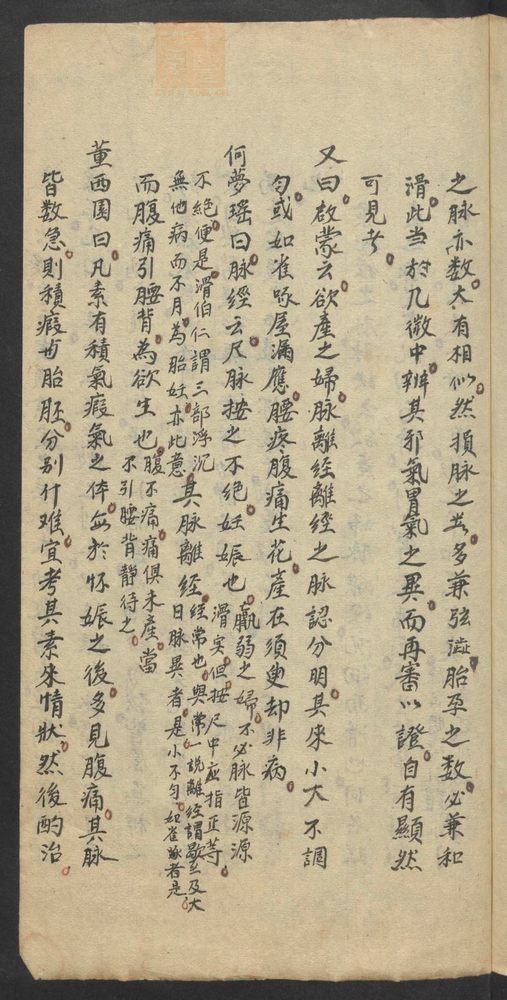 之脉亦数大有相似然損脉之类多兼弦澁胎孕之数必兼和
滑此当於几微中辨其邪氣胃氣之異而再審以證自有顯然
可見者
又曰啟蒙云欲產之婦脉離經離經之脉認分明其來小大不調
匀或如雀啄屋漏應腰疼腹痛生花產在須臾却非病
何夢瑤曰脉經云尺脉按之不絕妊娠也羸弱之婦不必脉皆源源
滑实但按尺中应指正等
不絕便是滑伯仁謂三部浮沉
無他病而不月為胎妊亦此意其脉離經經常也與常
日脉異者是一說離經謂歇至及大
小不匀如雀啄者是
而腹痛引腰背為欲生也腹不痛痛俱未產當
不引腰背靜待之
董西園曰凡素有積氣瘕氣之体每於怀娠之後多見腹痛其脉
皆数急則積瘕与胎胚分别什难宜考其素來情狀然後酌治